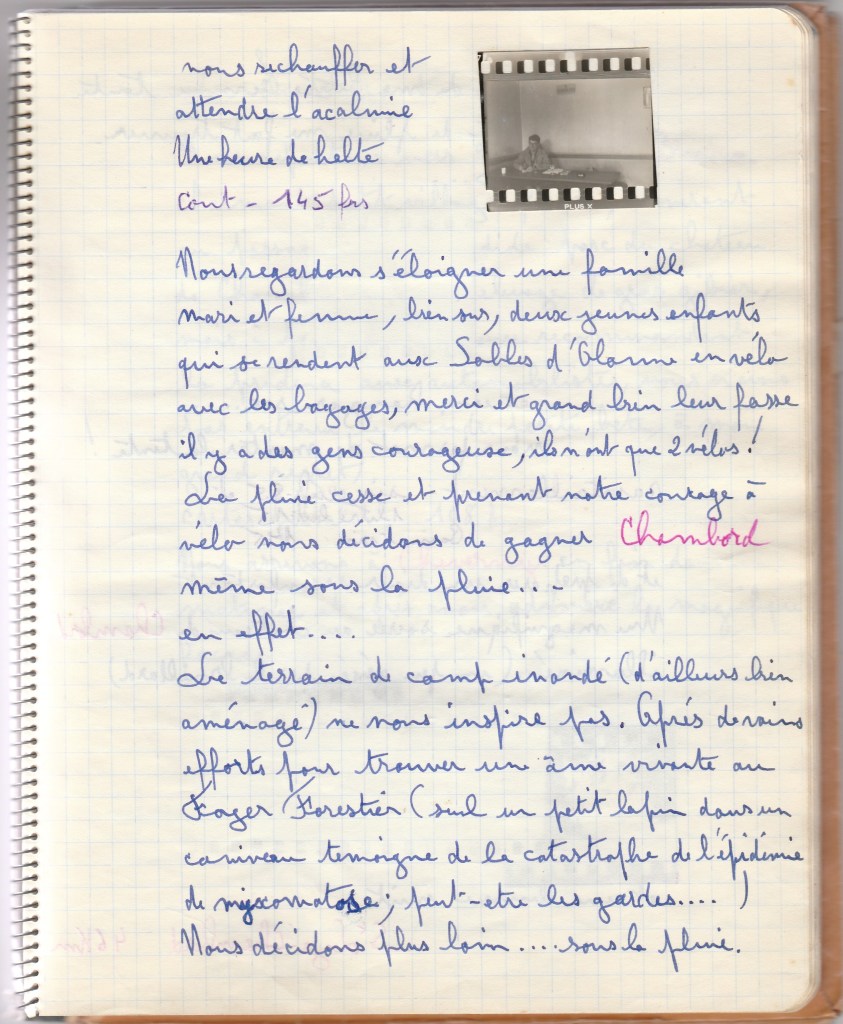 nous rechauffer et
attendre l'acalmie
Une heure de halte
Cout - 145 frs
PLUS X
Nous regardons s'éloigner une famille
mari et femme, bien sur, deux jeunes enfants
qui se rendent aux Sables d'Olonne en vélo
avec les bagages, merci et grand bien leur fasse
il y a des gens courageuse, ils n'ont que 2 vélos!
La pluie cesse et prenant notre courage à
vélo nous décidons de gagner Chambord
même sous la pluie....
en effet....
Le terrain de camp inondé (d'ailleurs bien
aménagé) ne nous inspire pas. Après de vains
efforts pour trouver une âme vivante au
Foyer Forestier (seul un petit lapin dans un
caniveau temoigne de la catastrophe de l'épidémie
de myxomatose; peut-etre les gardes.... )
Nous décidons plus loin .... sous la pluie.